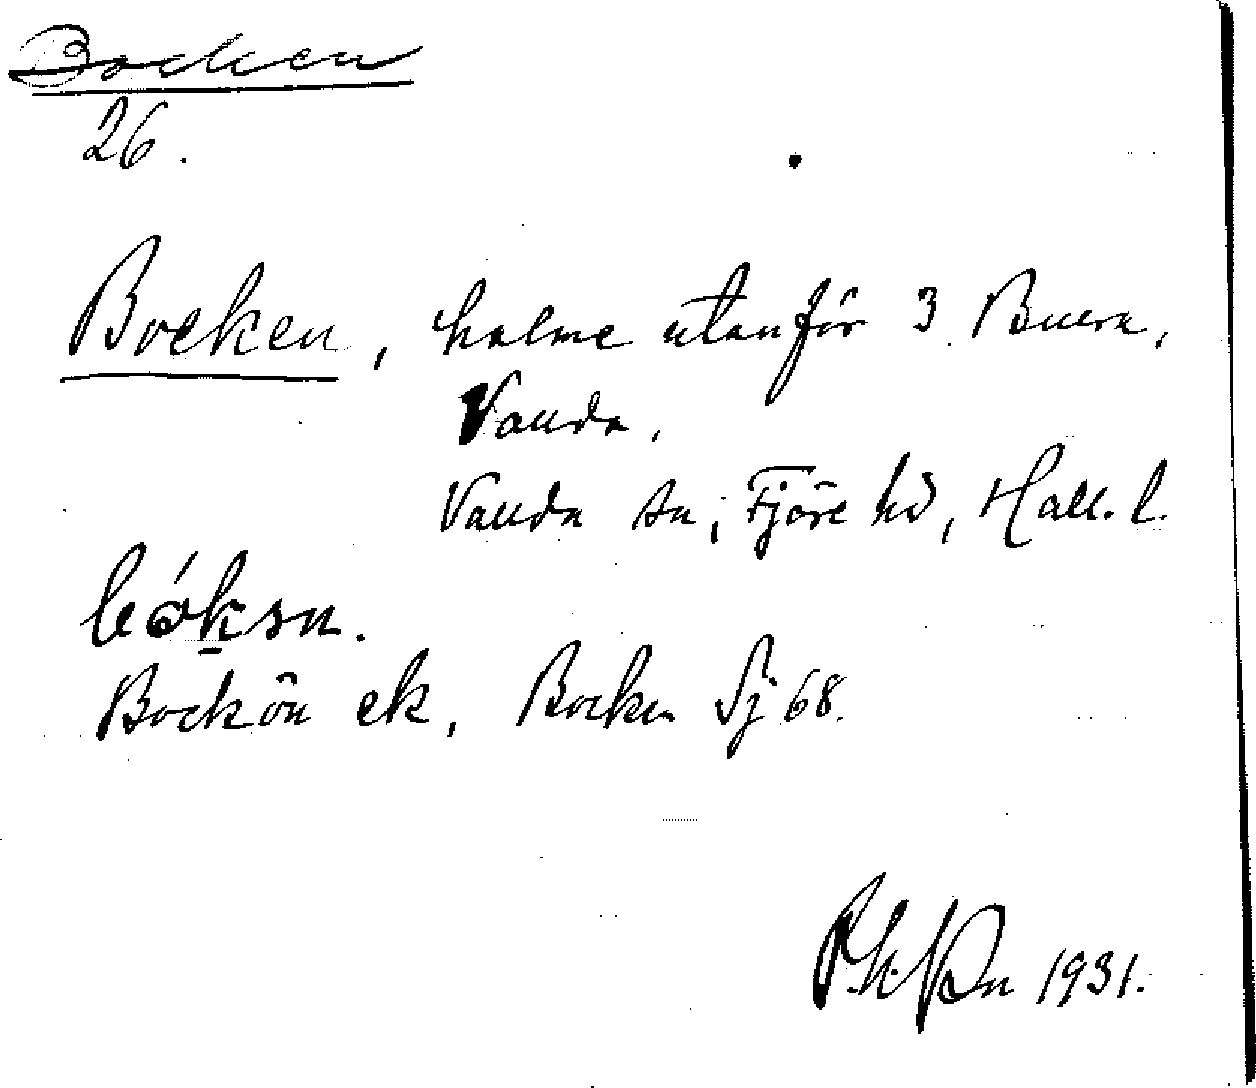 Bocken
26.
Bocken, holme utanför 3 Buera,
Vanda.
Vanda sn, Fjäre hd, Hall. l.
Bockön ek, Bocken Sj 68.
1931.